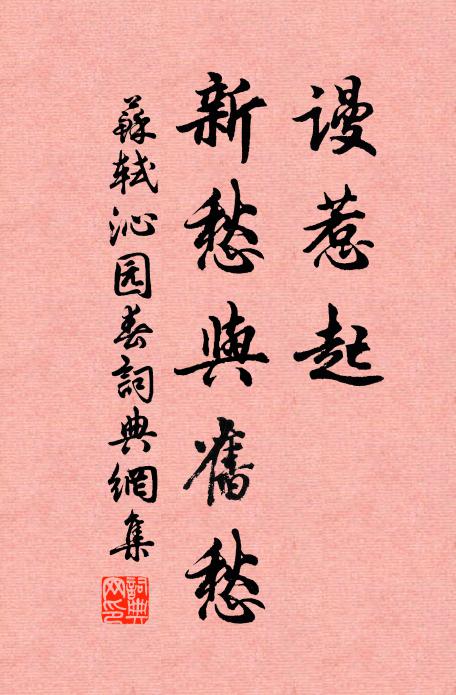 谩惹起
新愁與舊愁
蘇軾沁园春詞典網集
詞典网印